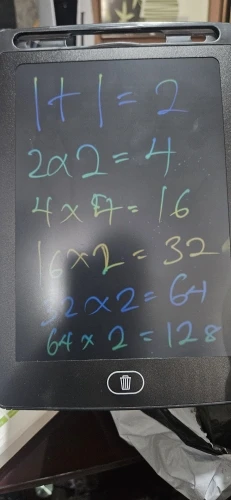 1+1=2
2x2=4
4x4=16
16x2=32
32x2=64
64x2=128